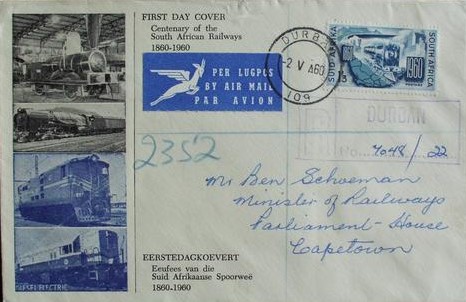 FIRST DAY COVER
Centenary of the
South African Railways
1860-1960
PER LUGPOS
BY AIR MAIL
PAR AVION
DURBAN
-2 V A60
109
SUID-AFRIKA
SOUTH AFRICA
1960
DURBAN
No. 7048/22
2352
Mr Ben Schoeman
Minister of Railways
Parliament-House
Capetown
EERSTEDAGKOEVERT
Eeufees van die
Suid Afrikaanse Spoorweë
1860-1960
DIESEL ELECTRIC